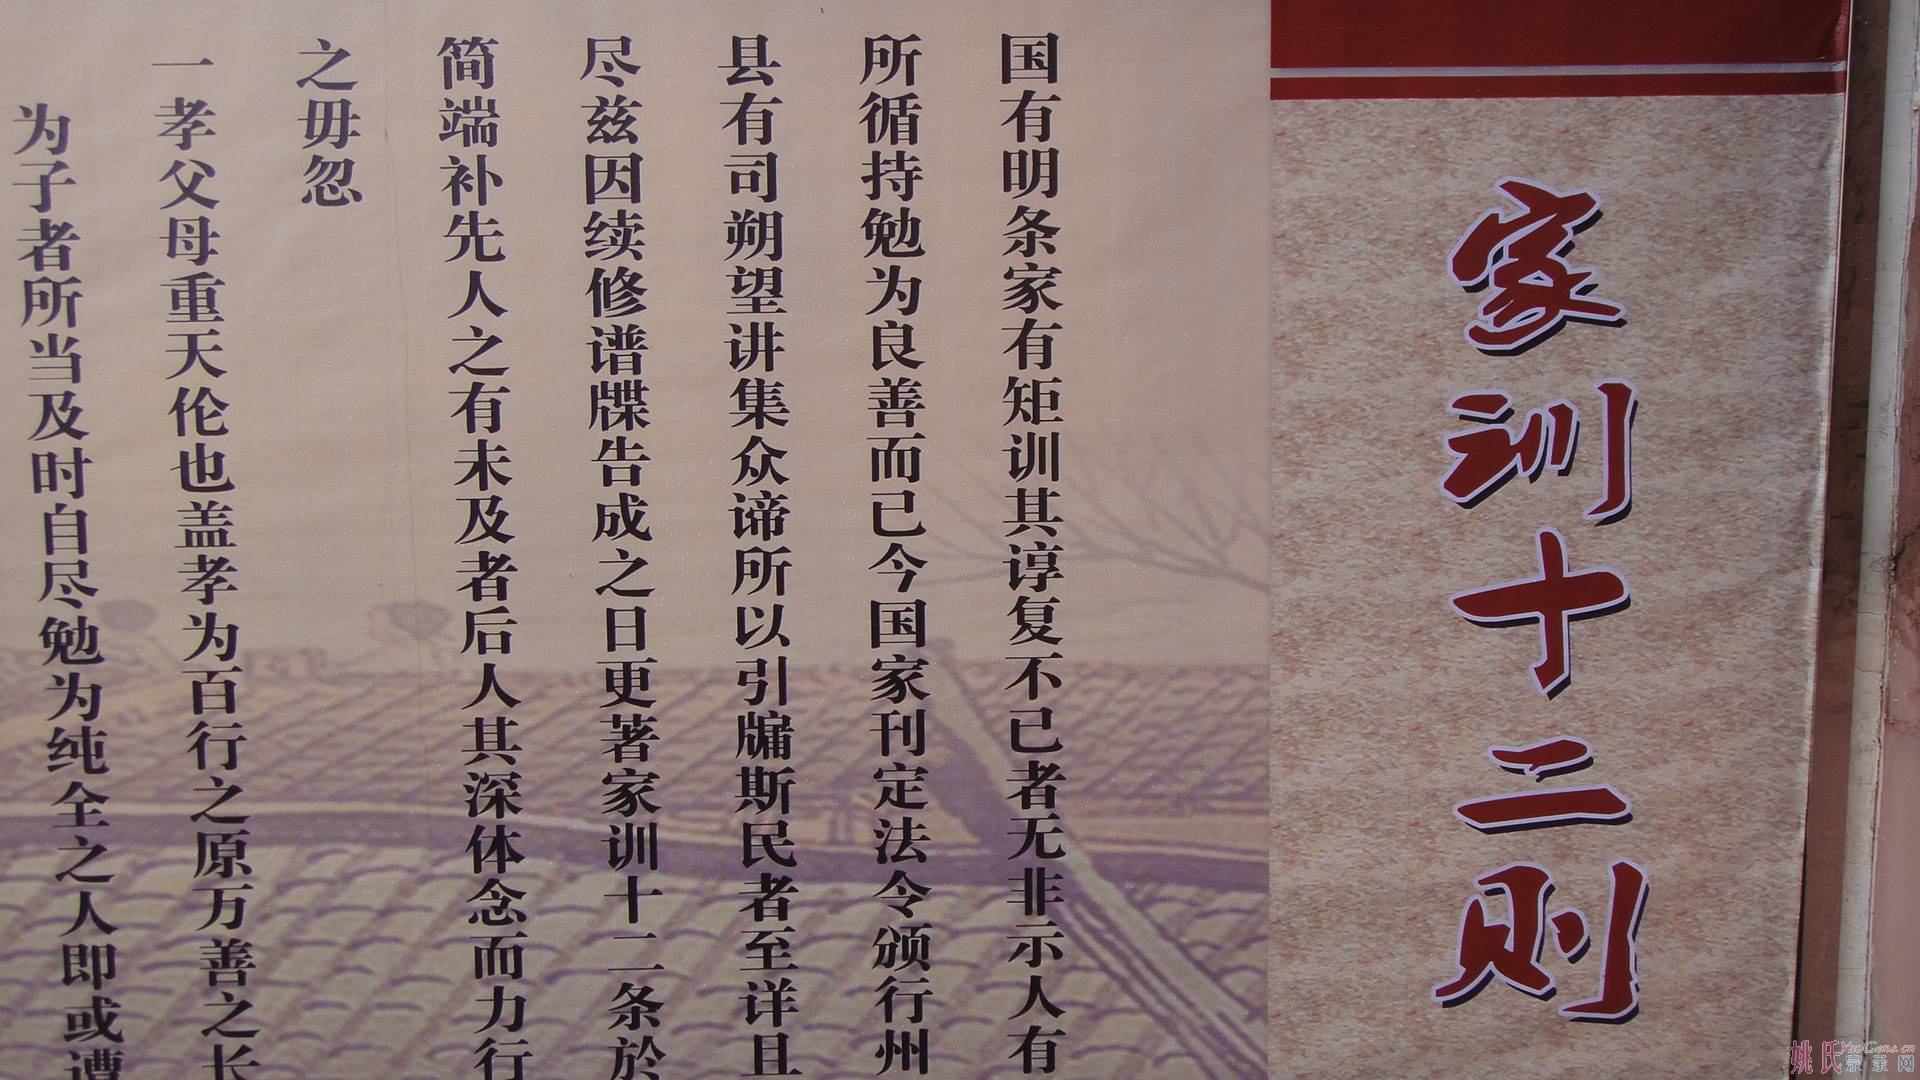 家训十二则
国有明条家有矩训其谆复不已者无非示人有
所循持勉为良善而已今国家刊定法令颁行州
县有司朔望讲集众谛所以引牖斯民者至详且
尽兹因续修谱牒告成之日更著家训十二条於
简端补先人之有未及者后人其深体念而力行
之毋忽
一孝父母重天伦也盖孝为百行之原万善之长
为子者所当及时自尽勉为纯全之人即或遭
姚氏宗亲网
YaoGens.cn